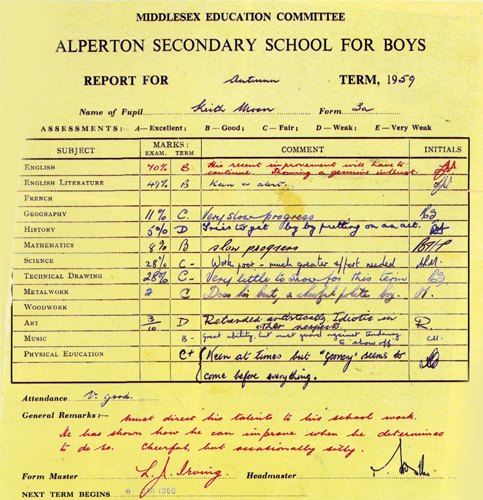 MIDDLESEX EDUCATION COMMITTEE
ALPERTON SECONDARY SCHOOL FOR BOYS
REPORT FOR Autumn TERM, 1959
Name of Pupil Keith Moon Form 3a
ASSESSMENTS:— A—Excellent; B—Good; C—Fair; D—Weak; E—Very Weak
SUBJECT MARKS: EXAM. TERM COMMENT INITIALS
ENGLISH 40% B His recent improvement will have to
continue. Showing a genuine interest.
ENGLISH LITERATURE 47% B Keen & alert.
FRENCH
GEOGRAPHY 11% C. Very slow progress
HISTORY 5% D Tries to get by by putting on an act.
MATHEMATICS 8% B slow progress
SCIENCE 28% C- Work poor - much greater effort needed
TECHNICAL DRAWING 28% C- Very little to show for this term
METALWORK 2 C Does his best, a cheerful polite boy.
WOODWORK
ART 3/10 D Retarded artistically. Idiotic in
other respects.
MUSIC B- Great ability, but must guard against tendency
to show off.
PHYSICAL EDUCATION C+ Keen at times but "goonery" seems to
come before everything.
Attendance V. good.
General Remarks:— Must direct his talents to his school work.
He has shown how he can improve when he determines
to do so. Cheerful, but occasionally silly.
Form Master L. J. Irving Headmaster
NEXT TERM BEGINS 6 JAN 1960